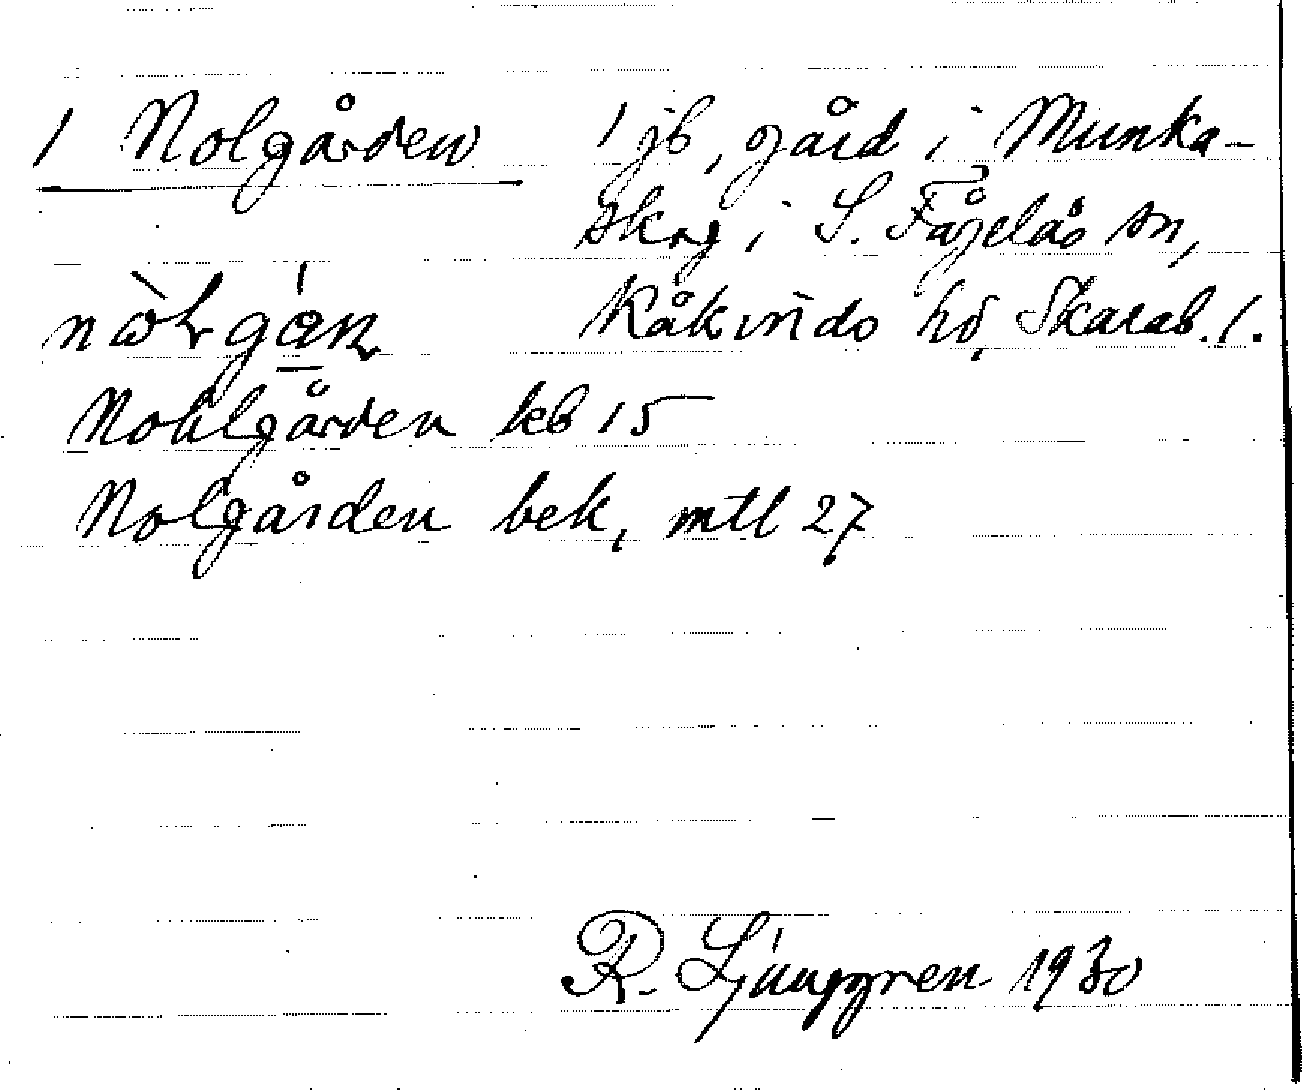 1 Nolgården 1 jb, gård i Munka-
skog i S. Fågelås sn,
Kåkinds hd, Skarab. l.
Nohlgården keb 15
Nolgården bek, mtl 27
R. Ljunggren 1930